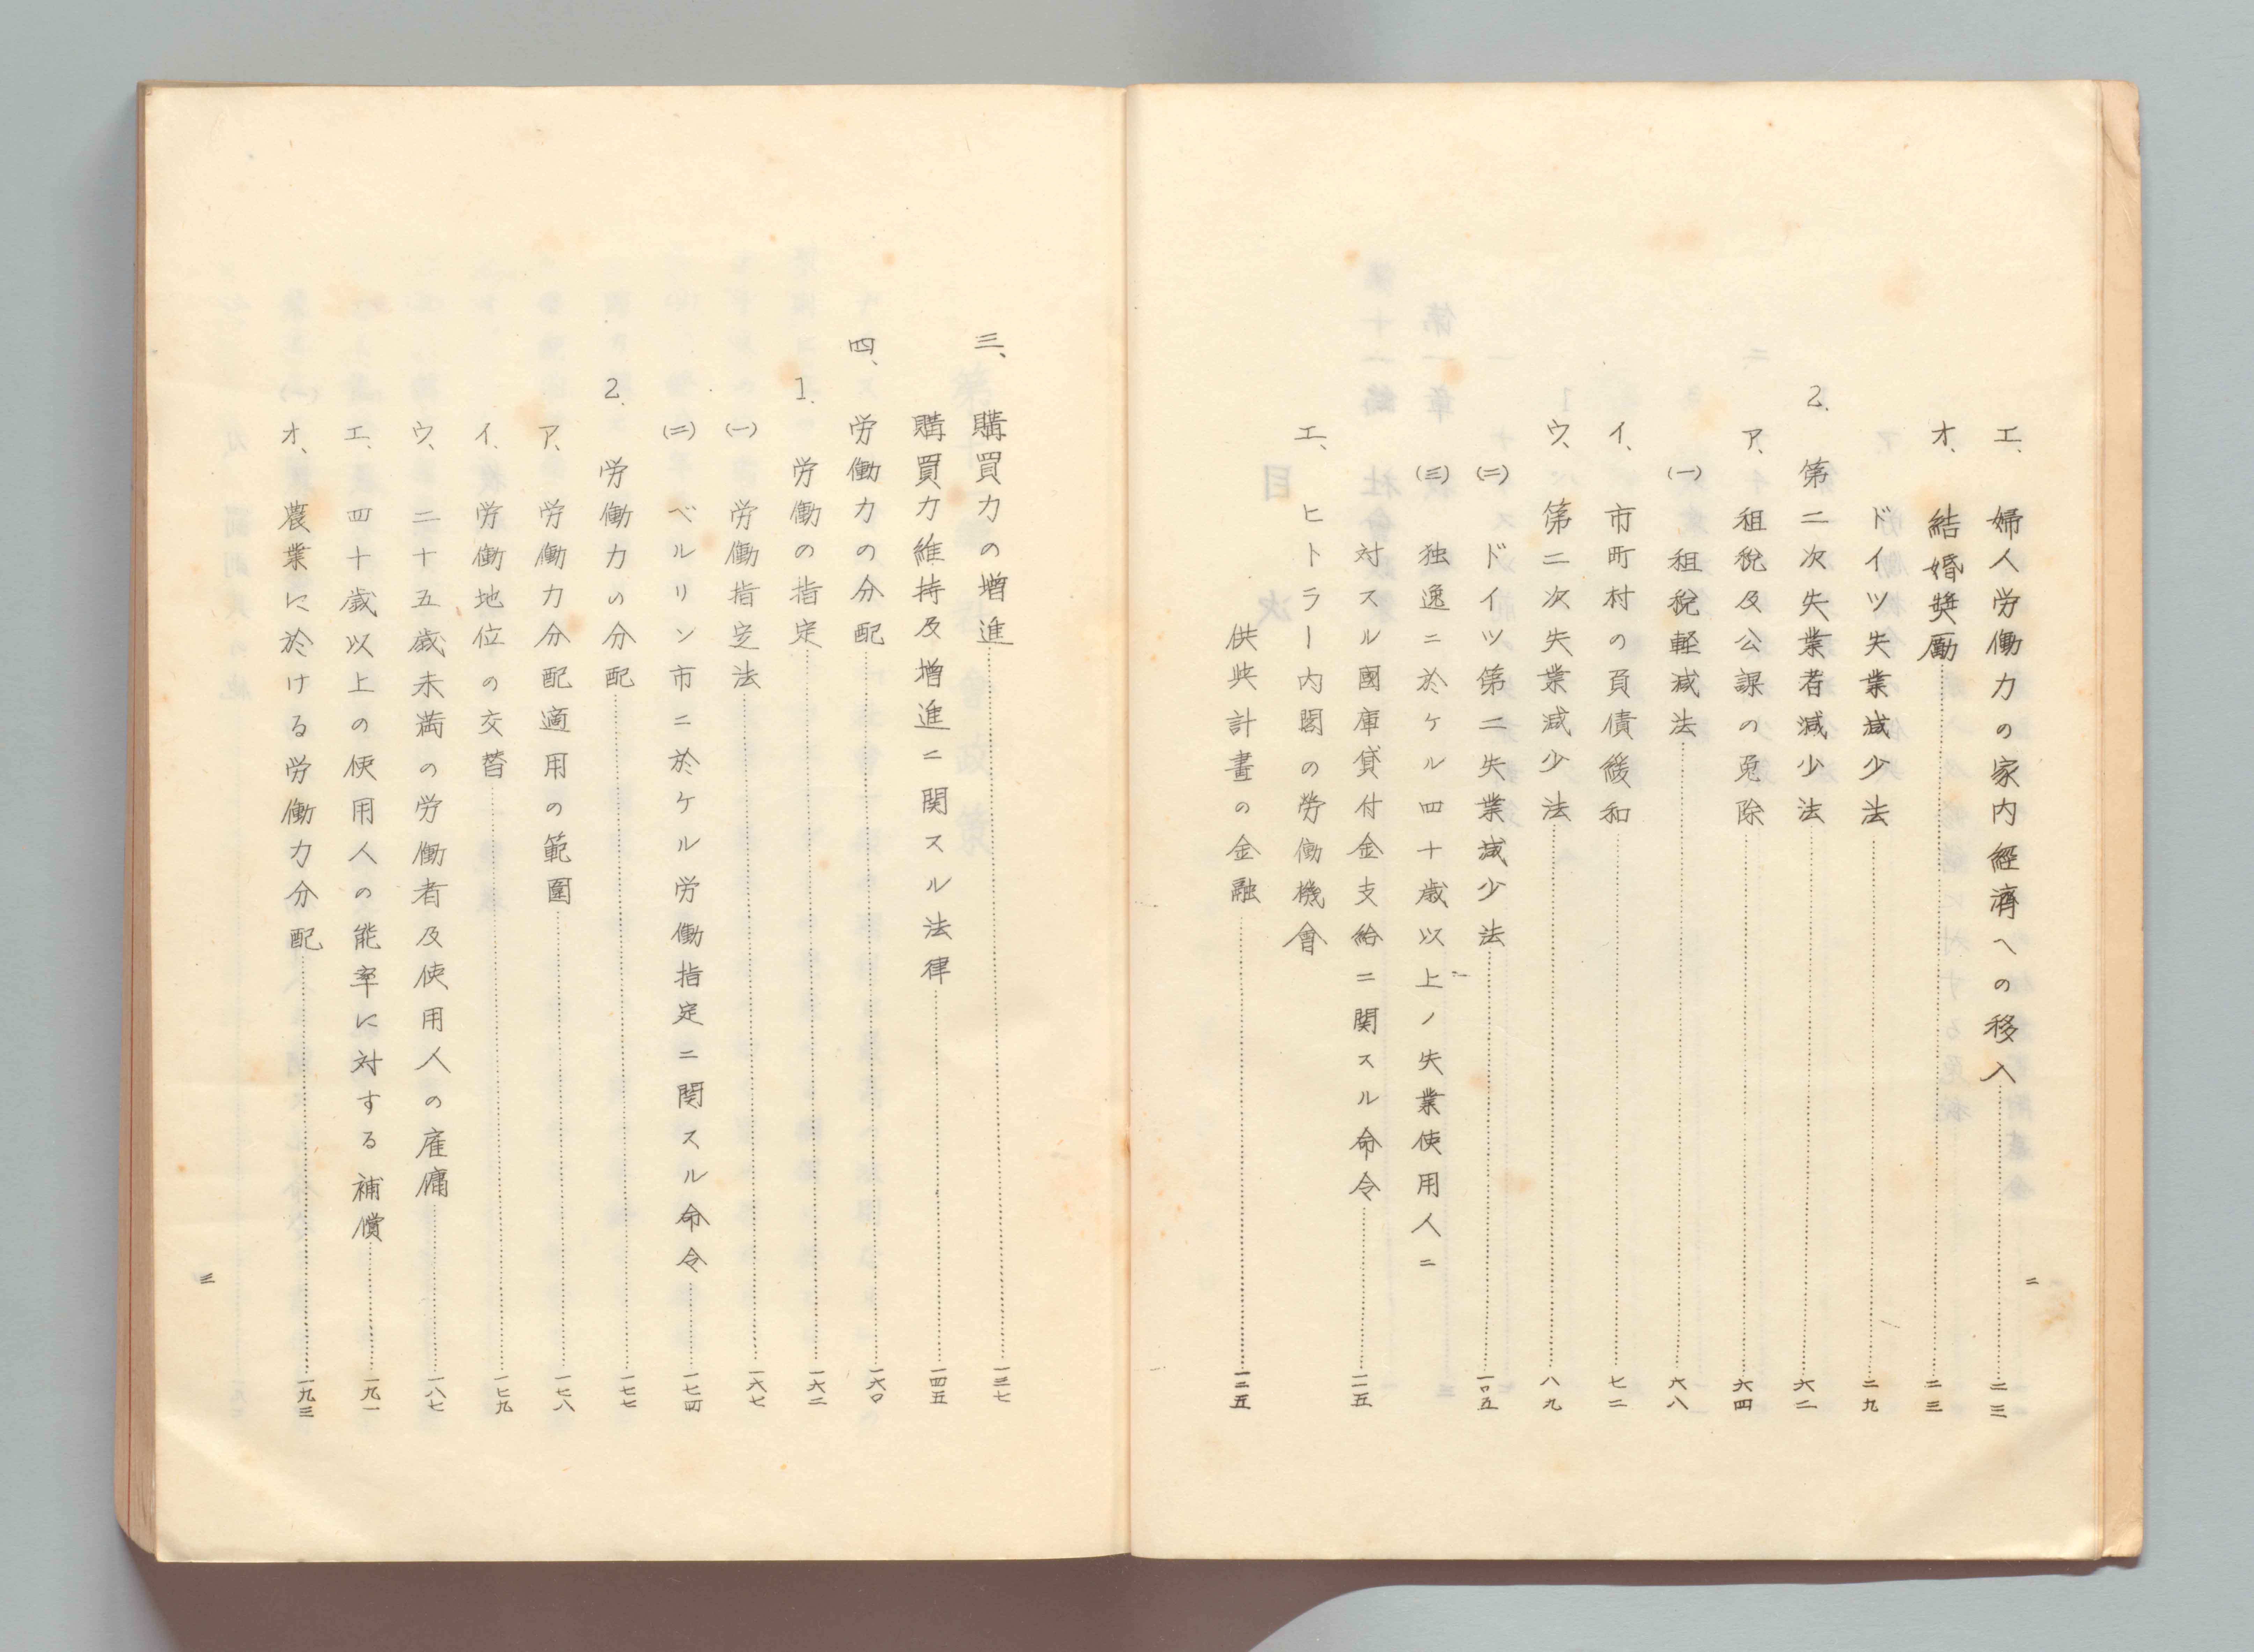 二
エ、婦人労働力の家内経済への移入……二三
オ、結婚奨励……二三
ドイツ失業減少法……二九
2. 第二次失業者減少法……六二
ア、租税及公課の免除……六四
(一) 租税軽減法……六八
イ、市町村の負債緩和……七二
ウ、第二次失業減少法……八九
(二) ドイツ第二失業減少法……一〇五
(三) 独逸ニ於ケル四十歳以上ノ失業使用人ニ
対スル國庫貸付金支給ニ関スル命令……一一五
エ、ヒトラー内閣の勞働機會
供與計畫の金融……一二五
三、購買力の増進……一三七
購買力維持及増進ニ関スル法律……一四五
四、労働力の分配……一六〇
1. 労働の指定……一六二
(一) 労働指定法……一六七
(二) ベルリン市ニ於ケル労働指定ニ関スル命令……一七四
2. 労働力の分配……一七七
ア、労働力分配適用の範囲……一七八
イ、労働地位の交替……一七九
ウ、二十五歳未満の労働者及使用人の雇傭……一八七
エ、四十歳以上の使用人の能率に対する補償……一九一
オ、農業に於ける労働力分配……一九三
三